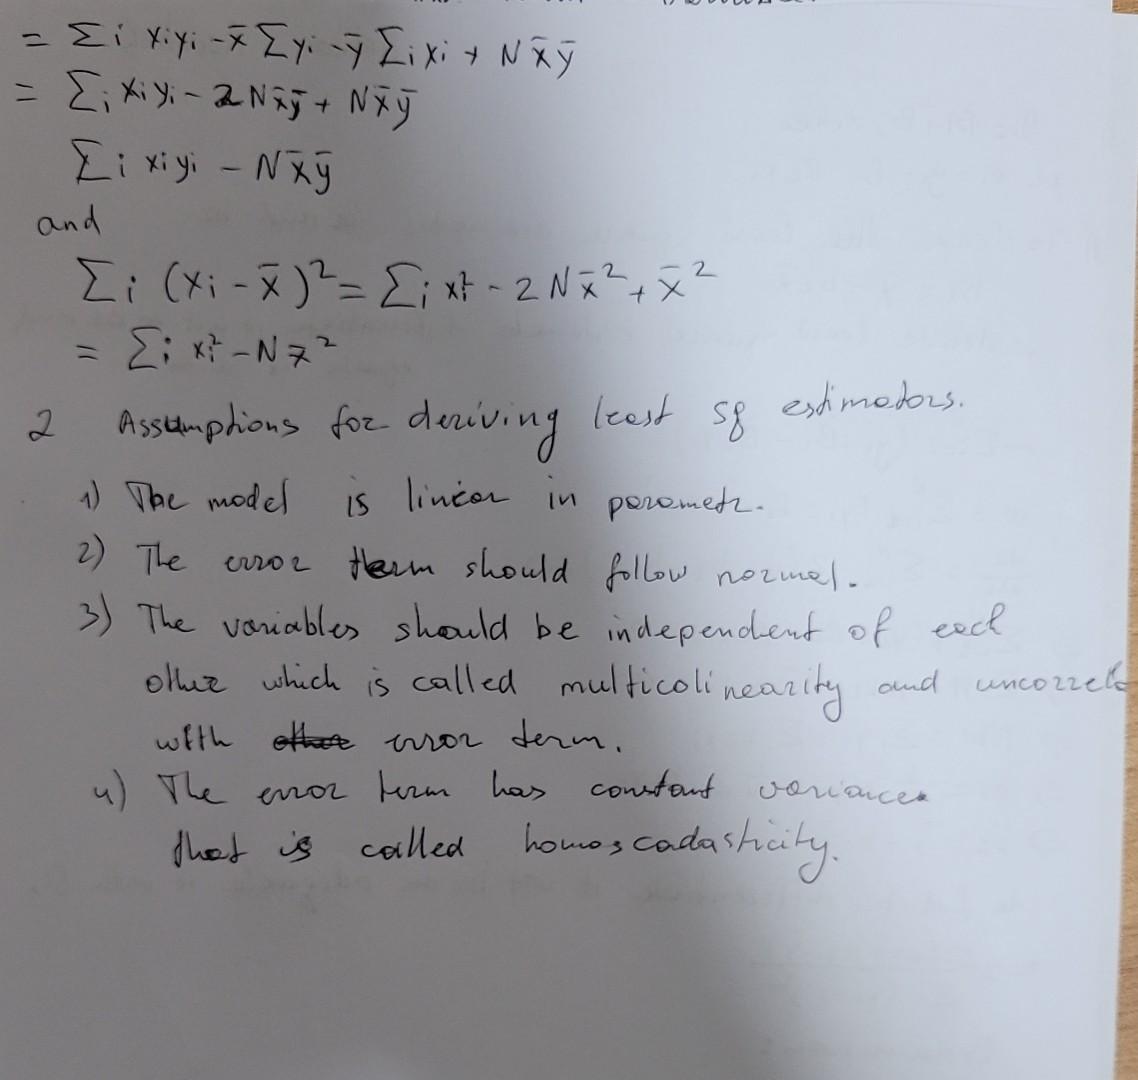 = Σi xiyi - x̄ Σyi - ȳ Σi xi + N x̄ ȳ
= Σi xiyi - 2Nx̄ȳ + Nx̄ȳ
Σi xiyi - Nx̄ȳ
and
Σi (xi - x̄)² = Σi xi² - 2Nx̄² + x̄²
= Σi xi² - Nx̄²
2 Assumptions for deriving least sq estimators.
1) The model is linear in parametr.
2) The error term should follow normal.
3) The variables should be independent of each
other which is called multicolinearity and uncorrela
with error term.
4) The error term has constant variance
that is called homoscadasticity.